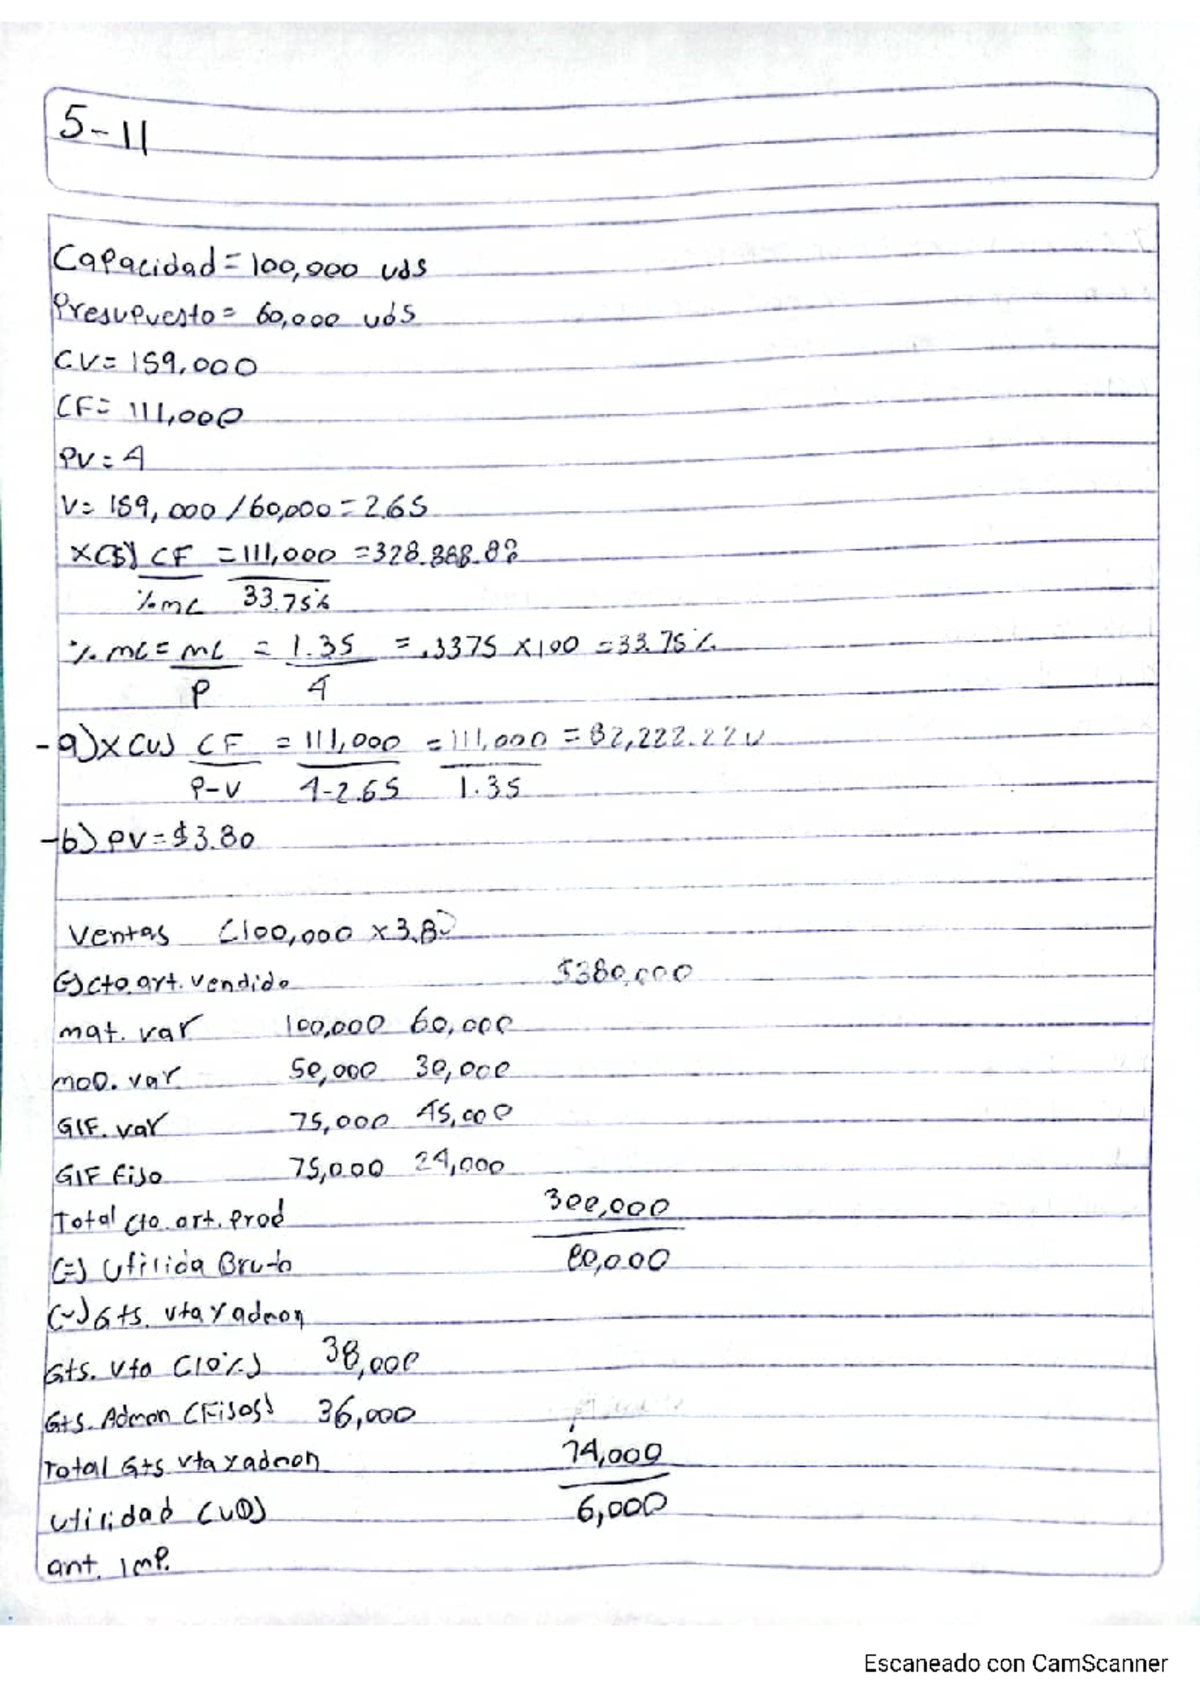 5-11
Capacidad = 100,000 uds
Presupuesto = 60,000 uds
CV = 159,000
CF = 111,000
PV = 4
V = 159,000 / 60,000 = 2.65
X($) CF = 111,000 = 328.888.88
%mc 33.75%
% mc = mc = 1.35 = .3375 x100 = 33.75%
P 4
-a) X(u) CF = 111,000 = 111,000 = 82,222.22 u
P-V 4-2.65 1.35
-b) PV = $3.80
Ventas (100,000 x 3.8
(-) cto. art. vendido $380,000
mat. var 100,000 60,000
MOD. var 50,000 30,000
GIF. var 75,000 45,000
GIF fijo 75,000 24,000
Total cto. art. Prod 300,000
(=) Utilida Bruta 80,000
(-) Gts. vta y admon
Gts. Vta (10%) 38,000
Gts. Admon (Fijos) 36,000
Total Gts vta y admon 74,000
Utilidad (UO) 6,000
ant. Imp.
Escaneado con CamScanner